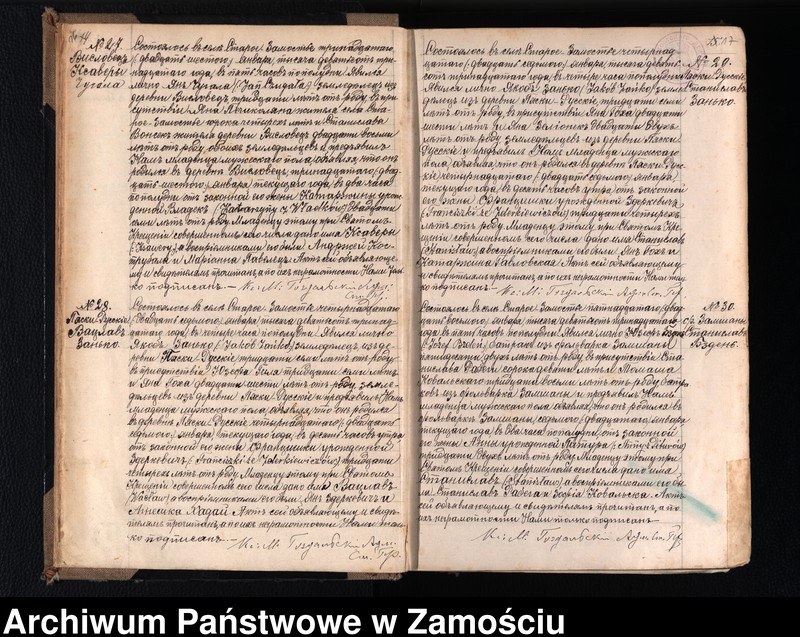 № 27.
Висловец
Ксаверы
Чугала
Состоялось въ селѣ Старое Замостье тринадцатаго
(двадцать шестого) Января, тысяча девятьсотъ три-
надцатаго года, въ пять часовъ пополудни. Явился
лично Янъ Чугала (Jan Czugała) земледѣлецъ изъ
деревни Висловецъ тридцати лѣтъ отъ роду, въ при-
сутствіи
жителя села Ста-
рое-Замостье сорока четырехъ лѣтъ и Станислава
жителя деревни Висловецъ двадцати восьми
лѣтъ отъ роду, обоихъ земледѣльцевъ и предъявилъ
Намъ младенца мужескаго пола, объявляя, что онъ
родился въ деревнѣ Висловецъ, тринадцатаго (двад-
цать шестого) Января текущаго года, въ два часа
пополудни отъ законной его жены Катаржины урож-
денной Владекъ (Katarzyny z Władków) двадцати
семи лѣтъ отъ роду. Младенцу этому при Святомъ
Крещеніи совершенномъ сего числа дано имя Ксаверы
(Ksawery), а воспріемниками его были Анджей Кос-
трубала и Маріанна Павелецъ. Актъ сей объявляюще-
му и свидѣтелямъ прочитанъ, а по ихъ неграмотности Нами толь-
ко подписанъ.—
№ 28.
Пяски Русскіе
Вацлавъ
Занько.
Состоялось въ селѣ Старое Замостье четырнадцатаго
(двадцать седьмого) Января, тысяча девятьсотъ тринад-
цатаго года, въ четыре часа пополудни. Явился лично
Якобъ Занько (Jakób Zańko) земледѣлецъ изъ де-
ревни Пяски Русскіе тридцати семи лѣтъ отъ роду,
въ присутствіи Юзефа тридцати семи лѣтъ
и Яна Коха двадцати шести лѣтъ отъ роду, земле-
дѣльцевъ изъ деревни Пяски Русскіе и предъявилъ Намъ
младенца мужескаго пола, объявляя, что онъ родился
въ деревнѣ Пяски Русскіе четырнадцатаго (двадцать
седьмого) Января текущаго года, въ десять часовъ утра
отъ законной его жены Францишки урожденной
Здеркевичъ (Franciszki ze Zderkiewiczów) тридцати
четырехъ лѣтъ отъ роду. Младенцу этому при Святомъ
Крещеніи совершенномъ сего числа дано имя Вацлавъ
(Wacław) а воспріемниками его были Янъ Здеркевичъ и
Агнешка Хадай. Актъ сей объявляющему и свидѣ-
телямъ прочитанъ, а по ихъ неграмотности Нами толь-
ко подписанъ.—
17
№ 29.
Пяски Русскіе
Станиславъ
Занько.
Состоялось въ селѣ Старое Замостье четырнад-
цатаго (двадцать седьмого) Января, тысяча девять-
сотъ тринадцатаго года, въ четыре часа пополудни.
Явился лично Якобъ Занько (Jakób Zańko) земле-
дѣлецъ изъ деревни Пяски Русскіе, тридцати семи
лѣтъ отъ роду, въ присутствіи Яна Коха двадцати
шести лѣтъ и Яна двадцати двухъ
лѣтъ отъ роду, земледѣльцевъ изъ деревни Пяски
Русскіе и предъявилъ Намъ младенца мужескаго
пола, объявляя, что онъ родился въ деревнѣ Пяски Рус-
скіе четырнадцатаго (двадцать седьмого) Января
текущаго года, въ десять часовъ утра, отъ законной
его жены Францишки урожденной Здеркевичъ
(Franciszki ze Zderkiewiczów) тридцати четырехъ
лѣтъ отъ роду. Младенцу этому, при Святомъ Кре-
щеніи совершенномъ сего числа дано имя Станиславъ
(Stanisław) а воспріемниками его были Янъ Кохъ и
Катаржина Павловская. Актъ сей объявляющему
и свидѣтелямъ прочитанъ, а по ихъ неграмотности Нами толь-
ко подписанъ.—
№ 30.
Станиславъ
Бздень.
Состоялось въ селѣ Старое Замостье пятнадцатаго (двад-
цать восьмого) Января, тысяча девятьсотъ тринадцатаго
года, въ пять часовъ пополудни. Явился лично Юзефъ Бздень
(Józef Bzdeń) изъ фольварка
пятидесяти двухъ лѣтъ отъ роду, въ присутствіи Ста-
нислава сорока девяти лѣтъ и Томаша
Ковальскаго тридцати восьми лѣтъ отъ роду,
изъ фольварка и предъявилъ Намъ
младенца мужескаго пола, объявляя, что онъ родился въ
фольваркѣ седьмого (двадцатаго) Января
текущаго года, въ два часа пополудни, отъ законной
его жены Анны урожденной
тридцати двухъ лѣтъ отъ роду. Младенцу этому при
Святомъ Крещеніи совершенномъ сего числа дано имя
Станиславъ (Stanisław) а воспріемниками его бы-
ли Станиславъ и Зофія Ковальская. Актъ
сей объявляющему и свидѣтелямъ прочитанъ, а по
ихъ неграмотности Нами только подписанъ.—
Archiwum Państwowe w Zamościu